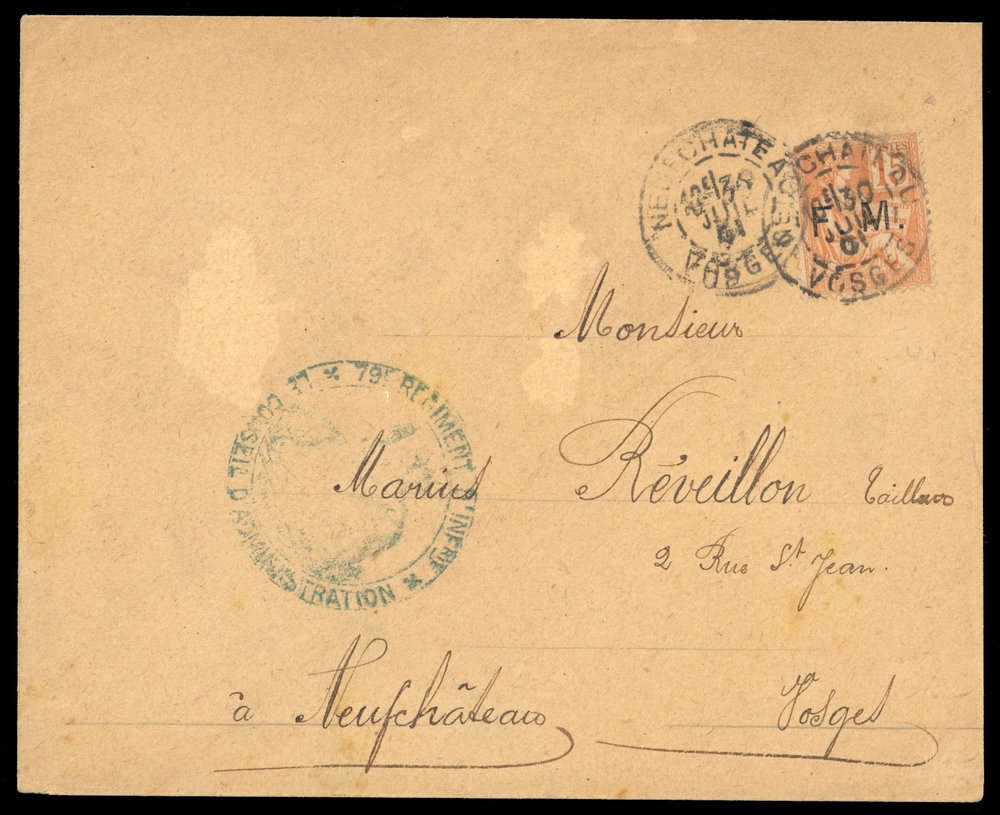 NEUFCHATEAU
30
JUIL
01
VOSGES
15
F. M.
NEUFCHATEAU
30
JUIL
01
VOSGES
Monsieur
79E REGIMENT D'INFRIE
LE CONSEIL D'ADMINISTRATION
Marius Réveillon Tailleur
2 Rue St Jean.
à Neufchâteau Vosges